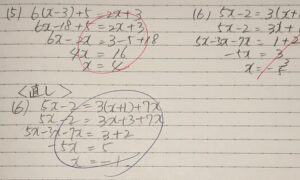 (5) 6(x-3)+5=2x+3
6x-18+5=2x+3
6x-2x=3-5+18
4x=16
x=4
(6) 5x-2=3(x+
5x-2=3x+
5x-3x-7x=1+2
-5x=3
<直し>
(6) 5x-2=3(x+1)+7x
5x-2=3x+3+7x
5x-3x-7x=3+2
-5x=5
x=-1